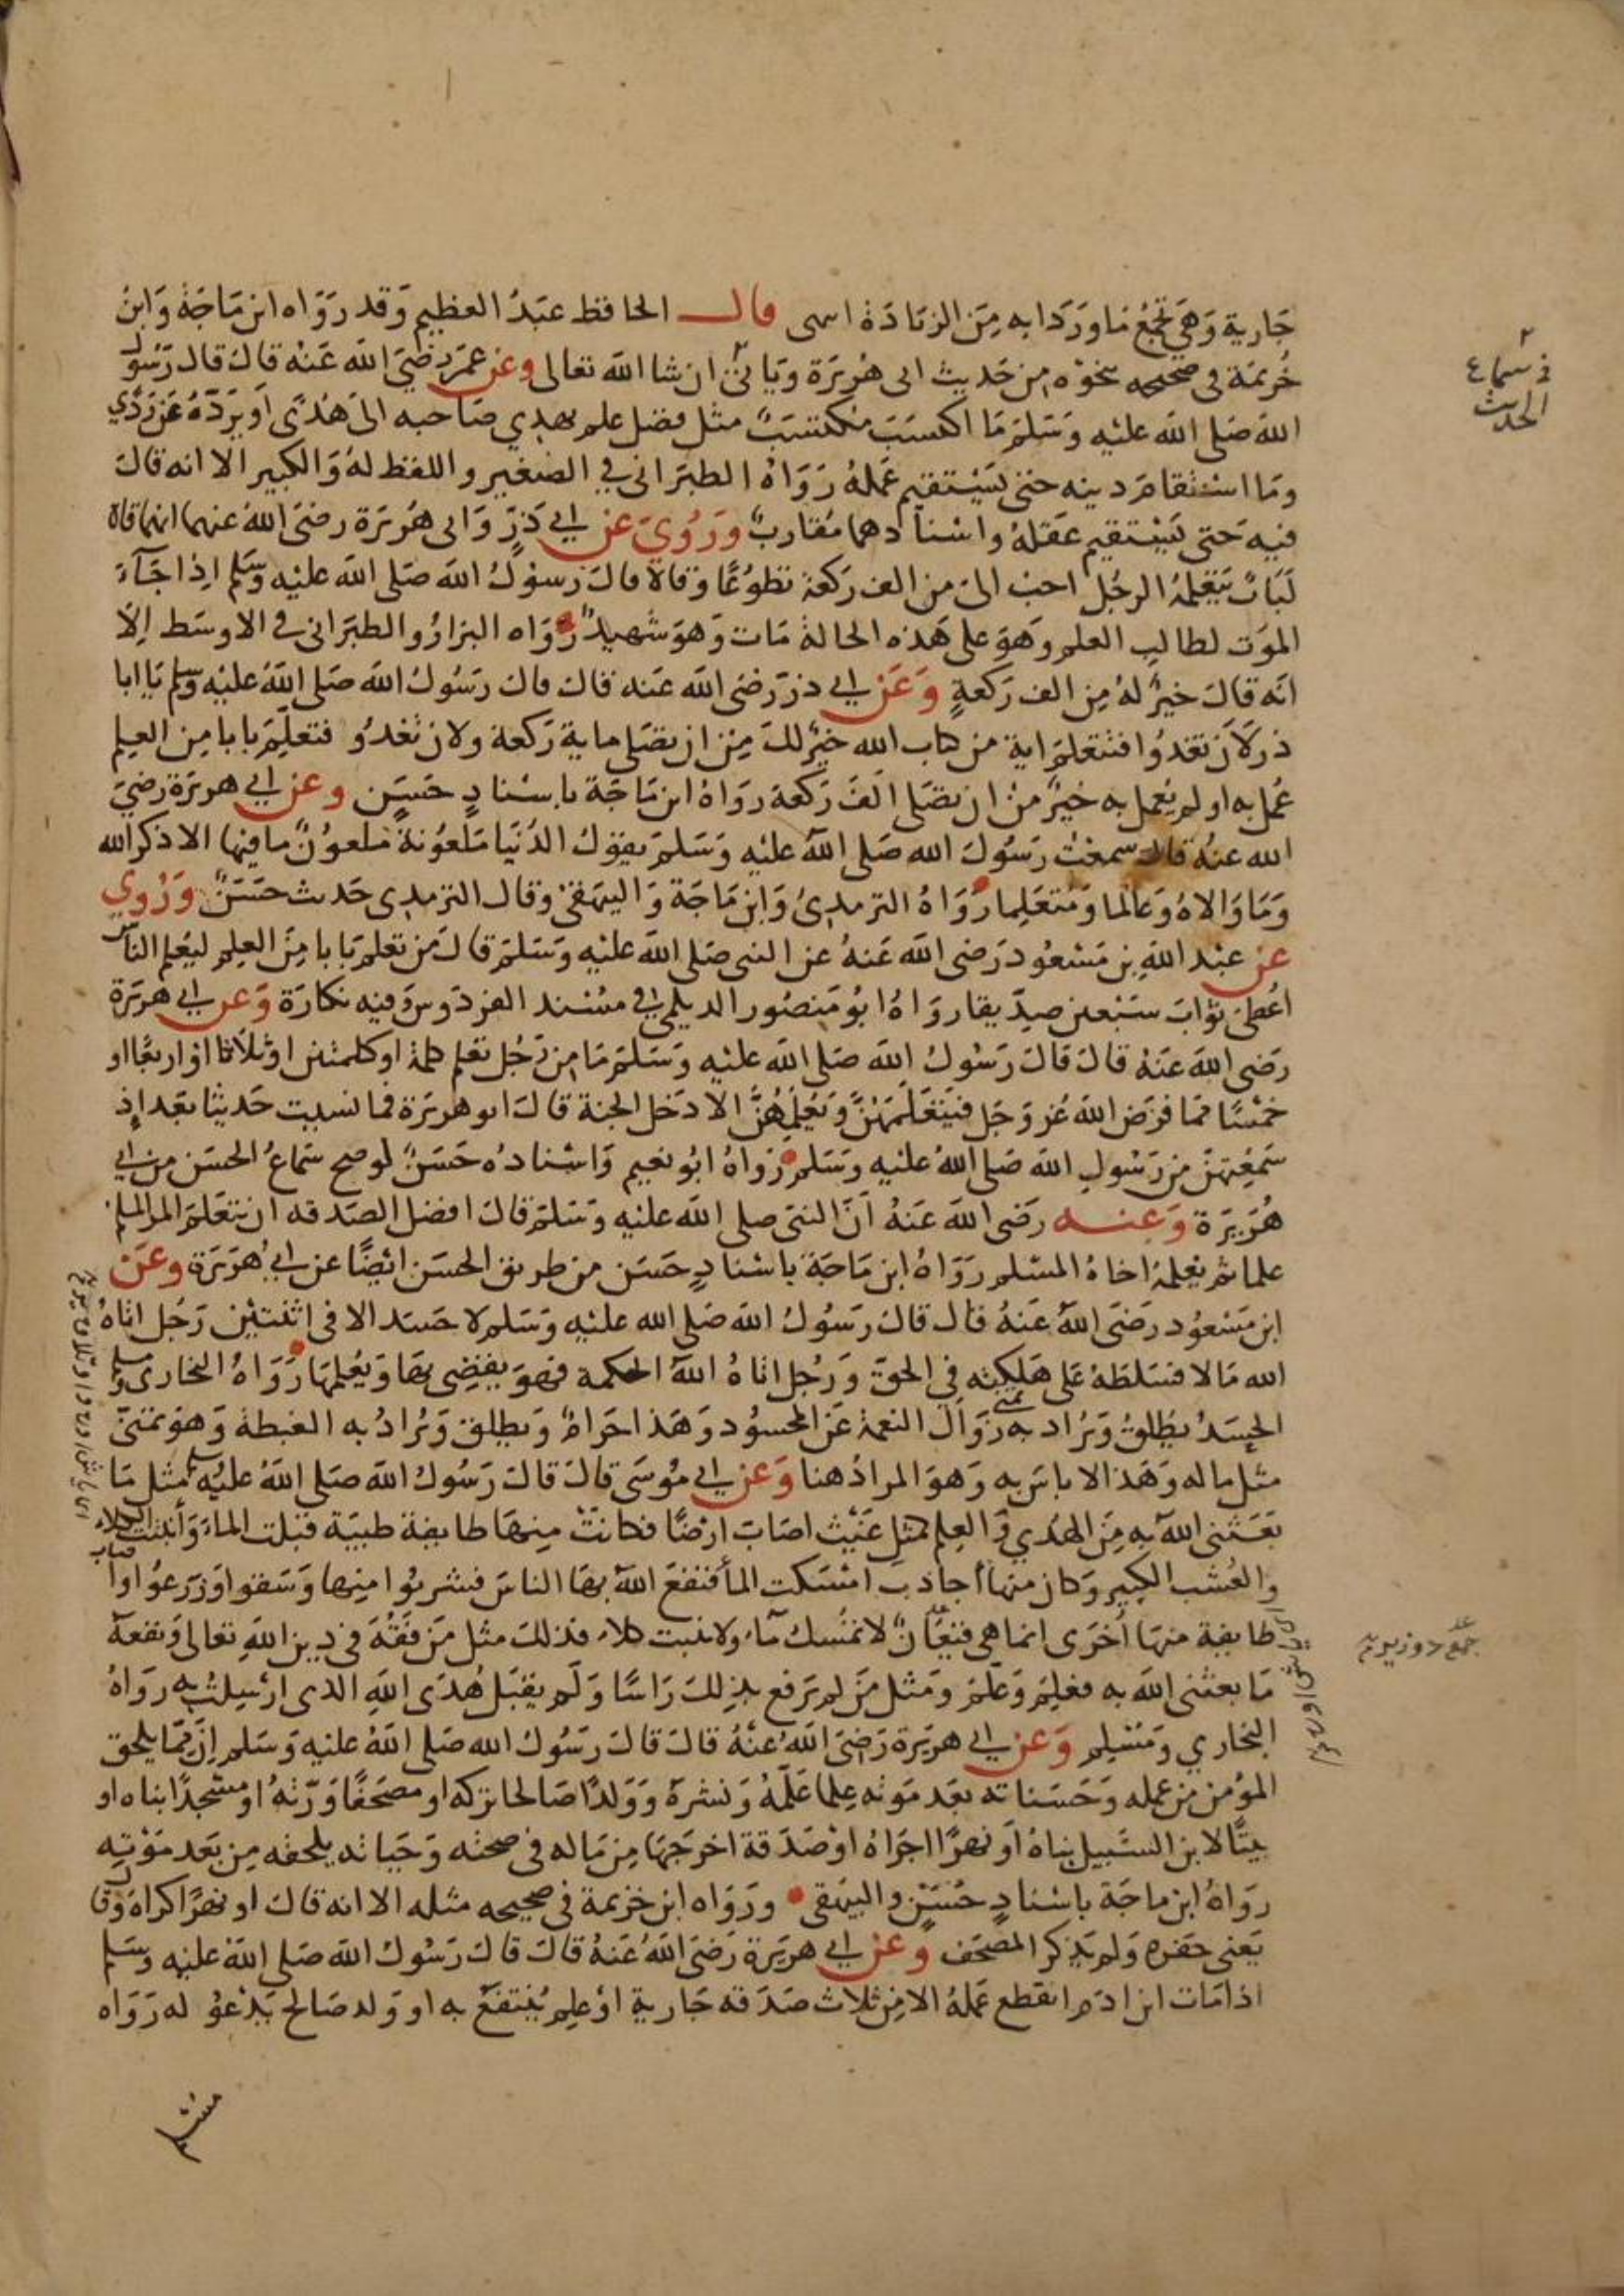 جارية وهي تجمع ما وردا به من الزيادة انتهى قال الحافظ عبد العظيم وقد رواه ابن ماجة وابن
خزيمة في صحيحه بنحوه من حديث ابي هريرة وياتي ان شا الله تعالى وعن عمر رضي الله عنه قال قال رسول
الله صلى الله عليه وسلم ما اكتسب مكتسب مثل فضل علم يهدي صاحبه الى هدى او يرده عن ردي
وما استقام دينه حتى يستقيم عمله رواه الطبراني في الصغير واللفظ له والكبير الا انه قال
فيه حتى يستقيم عقله واسنادهما مقارب وروي عن ابي ذر وابي هريرة رضي الله عنهما انهما قالا
لباب يتعلمه الرجل احب الي من الف ركعة تطوعا وقالا قال رسول الله صلى الله عليه وسلم اذا جآء
الموت لطالب العلم وهو على هذه الحالة مات وهو شهيد رواه البزار والطبراني في الاوسط الا
انه قال خير له من الف ركعة وعن ابي ذر رضي الله عنه قال قال رسول الله صلى الله عليه وسلم يا ابا
ذر لان تغدوا فتتعلم اية من كتاب الله خير لك من ان تصلي ماية ركعة ولان تغدو فتعلم بابا من العلم
عمل به او لم يعمل به خير من ان تصلي الف ركعة رواه ابن ماجة باسناد حسن وعن ابي هريرة رضي
الله عنه قال سمعت رسول الله صلى الله عليه وسلم يقول الدنيا ملعونة ملعون ما فيها الا ذكر الله
وما والاه وعالما ومتعلما رواه الترمدي وابن ماجة والبيهقي وقال الترمدي حديث حسن وروي
عن عبد الله بن مسعود رضي الله عنه عن النبي صلى الله عليه وسلم قال من تعلم بابا من العلم ليعلم الناس
اعطى ثواب سبعين صديقا رواه ابو منصور الديلمي في مسند الفردوس وفيه نكارة وعن ابي هريرة
رضي الله عنه قال قال رسول الله صلى الله عليه وسلم ما من رجل تعلم كلمة او كلمتين او ثلاثا او اربعا او
خمسا مما فرض الله عز وجل فيتعلمهن ويعلمهن الا دخل الجنة قال ابو هريرة فما نسيت حديثا بعد اذ
سمعتهن من رسول الله صلى الله عليه وسلم رواه ابو نعيم واسناده حسن لو صح سماع الحسن من ابي
هريرة وعنه رضي الله عنه ان النبي صلى الله عليه وسلم قال افضل الصدقه ان يتعلم المرا المسلم
علما ثم يعلمه اخاه المسلم رواه ابن ماجة باسناد حسن من طريق الحسن ايضا عن ابي هريرة وعن
ابن مسعود رضي الله عنه قال قال رسول الله صلى الله عليه وسلم لا حسد الا في اثنتين رجل اتاه
الله مالا فسلطه على هلكته في الحق ورجل اتاه الله الحكمة فهو يقضي بها ويعلمها رواه البخاري ومسلم
الحسد يطلق ويراد به تمني زوال النعمة عن المحسود وهذا حرام ويطلق ويراد به الغبطة وهو تمني
مثل ماله وهذا لا باس به وهو المراد هنا وعن ابي موسى قال قال رسول الله صلى الله عليه وسلم مثل ما
بعثني الله به من الهدي والعلم كمثل غيث اصاب ارضا فكانت منها طايفة طيبة قبلت الماء وأنبتت الكلاء
والعشب الكبير وكان منها أجادب امسكت الما فنفع الله بها الناس فشربوا منها وسقوا وزرعوا واصاب
طايفة منها أخرى انما هي قيعان لا تمسك مآء ولا تنبت كلاء فذلك مثل من فقه في دين الله تعالى ونفعه
ما بعثني الله به فعلم وعلم ومثل من لم يرفع بذلك راسا ولم يقبل هدى الله الذي ارسلت به رواه
البخاري ومسلم وعن ابي هريرة رضي الله عنه قال قال رسول الله صلى الله عليه وسلم ان مما يلحق
المؤمن من عمله وحسناته بعد موته علما علمه ونشره وولدا صالحا تركه او مصحفا ورثه او مسجدا بناه او
بيتا لابن السبيل بناه او نهرا اجراه او صدقة اخرجها من ماله في صحته وحياته يلحقه من بعد موته
رواه ابن ماجة باسناد حسن والبيهقي ورواه ابن خزيمة في صحيحه مثله الا انه قال او نهرا كراه وقال
يعني حفره ولم يذكر المصحف وعن ابي هريرة رضي الله عنه قال قال رسول الله صلى الله عليه وسلم
اذا مات ابن ادم انقطع عمله الا من ثلاث صدقه جارية او علم ينتفع به او ولد صالح يدعو له رواه
في سماع
الحديث